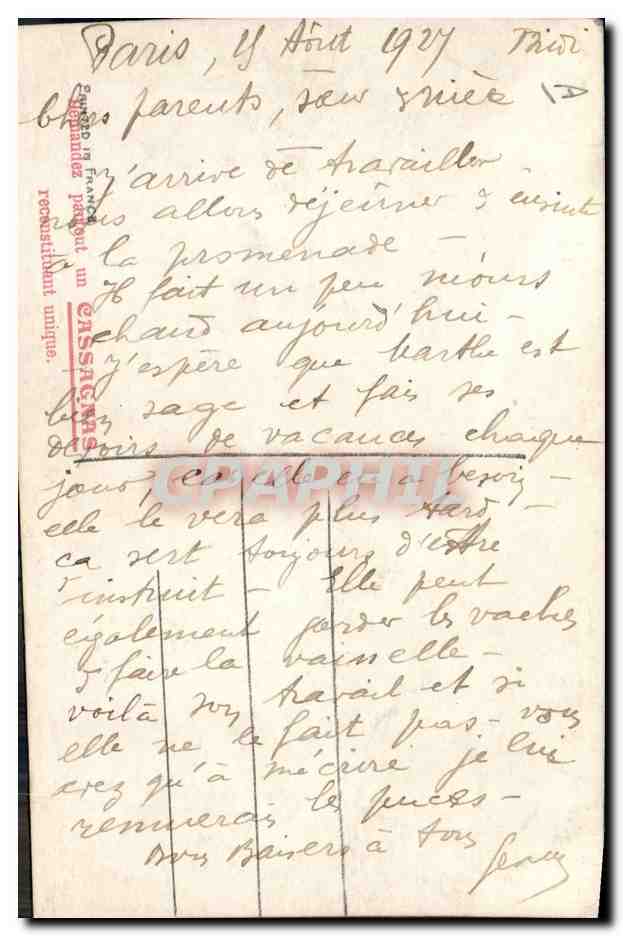 Paris, 15 Aôut 1927 Midi
Chers parents, sœur & nièce
J'arrive de travailler
nous allons déjeûner & ensuite
à la promenade -
Il fait un peu moins
chaud aujourd'hui -
J'espère que Marthe est
bien sage et fais ses
devoirs de vacances chaque
jour, car elle en a besoin -
elle le vera plus tard -
ça sert toujours d'être
instruit - Elle peut
également garder les vaches
& faire la vaisselle -
voilà son travail et si
elle ne le fait pas - vous
avez qu'à m'écrire je lui
remuerais les puces -
Bons Baisers à tous
PRINTED IN FRANCE
Demandez partout un CASSAGNAS
reconstituant unique.
CPAPHIL